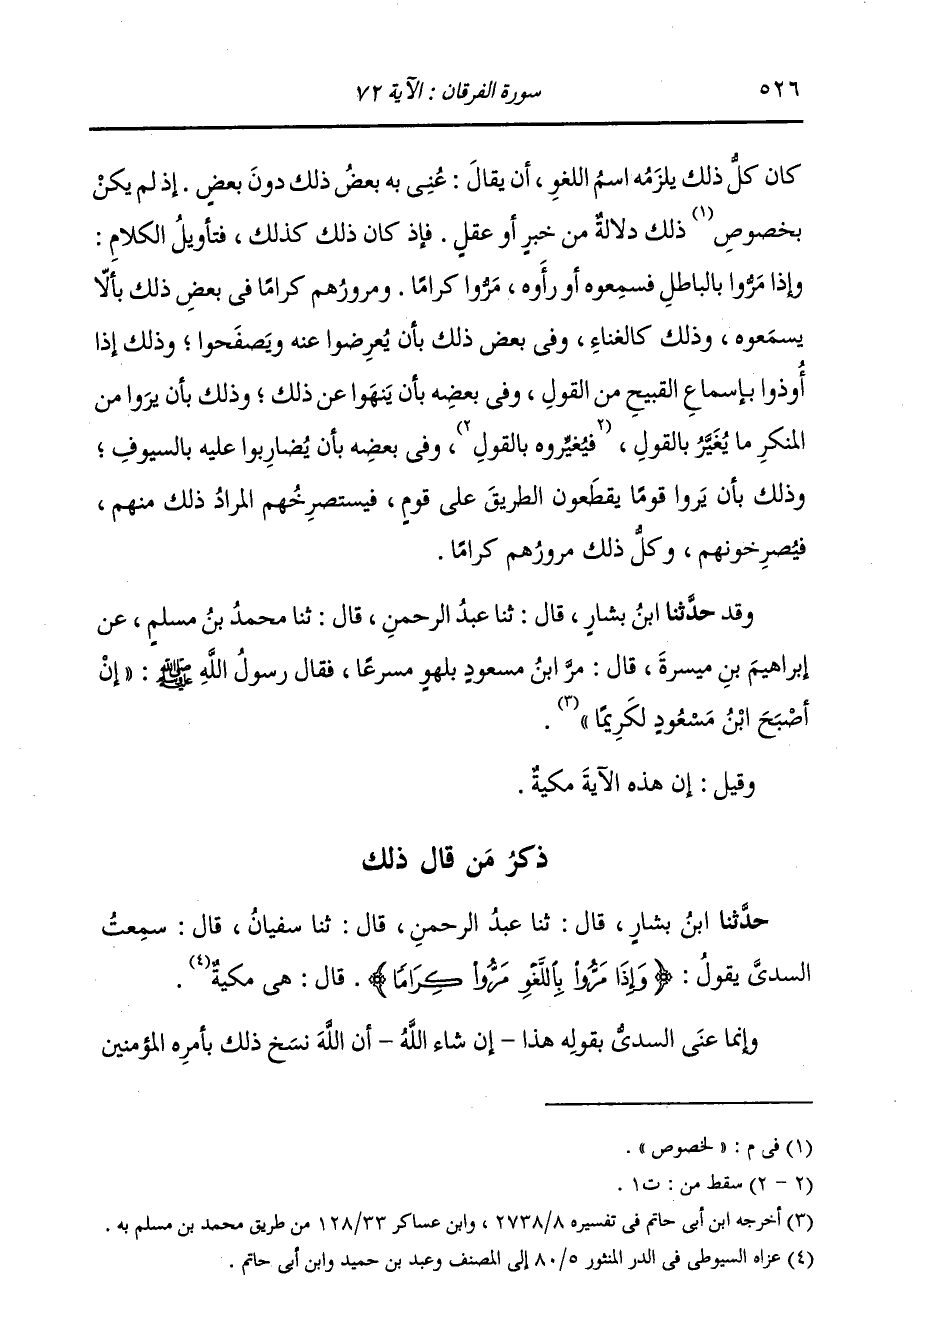 ٥٢٦ سورة الفرقان : الآية ٧٢
كان كلُّ ذلك يلزَمُه اسمُ اللغوِ ، أن يقالَ : عُنِى به بعضُ ذلك دونَ بعضٍ . إذ لم يكنْ
بخصوصِ(١) ذلك دلالةٌ من خبرٍ أو عقلٍ . فإذ كان ذلك كذلك ، فتأويلُ الكلامِ :
وإذا مَرُّوا بالباطلِ فسمِعوه أو رأَوه ، مَرُّوا كرامًا . ومرورُهم كرامًا فى بعضِ ذلك بألّا
يسمَعوه ، وذلك كالغناءِ ، وفى بعض ذلك بأن يُعرِضوا عنه ويَصفَحوا ؛ وذلك إذا
أُوذوا بإسماعِ القبيحِ من القولِ ، وفى بعضِه بأن يَنهَوا عن ذلك ؛ وذلك بأن يرَوا من
المنكرِ ما يُغَيَّرُ بالقولِ ، (٢فيُغيِّروه بالقولِ٢)، وفى بعضِه بأن يُضارِبوا عليه بالسيوفِ ؛
وذلك بأن يَروا قومًا يقطَعون الطريقَ على قومٍ ، فيستصرِخُهم المرادُ ذلك منهم ،
فيُصرِخونهم ، وكلُّ ذلك مرورُهم كرامًا .
وقد حدَّثنا ابنُ بشارٍ ، قال : ثنا عبدُ الرحمنِ ، قال : ثنا محمدُ بنُ مسلمٍ ، عن
إبراهيمَ بنِ ميسرةَ ، قال : مرَّ ابنُ مسعودٍ بلهوٍ مسرعًا ، فقال رسولُ اللَّهِ ﷺ : « إنْ
أصْبَحَ ابْنُ مَسْعُودٍ لكَرِيمًا »(٣) .
وقيل : إن هذه الآيةَ مكيةٌ .
ذكرُ مَن قال ذلك
حدَّثنا ابنُ بشارٍ ، قال : ثنا عبدُ الرحمنِ ، قال : ثنا سفيانُ ، قال : سمِعتُ
السدىَّ يقولُ : ﴿ وَإِذَا مَرُّواْ بِاللَّغْوِ مَرُّواْ كِرَامًا ﴾ . قال : هى مكيةٌ(٤) .
وإنما عنَى السدىُّ بقولِه هذا – إن شاء اللَّهُ – أن اللَّهَ نسَخ ذلك بأمرِه المؤمنين
(١) فى م : « لخصوص » .
(٢ – ٢) سقط من : ت١ .
(٣) أخرجه ابن أبى حاتم فى تفسيره ٢٧٣٨/٨ ، وابن عساكر ١٢٨/٣٣ من طريق محمد بن مسلم به .
(٤) عزاه السيوطى فى الدر المنثور ٨٠/٥ إلى المصنف وعبد بن حميد وابن أبى حاتم .